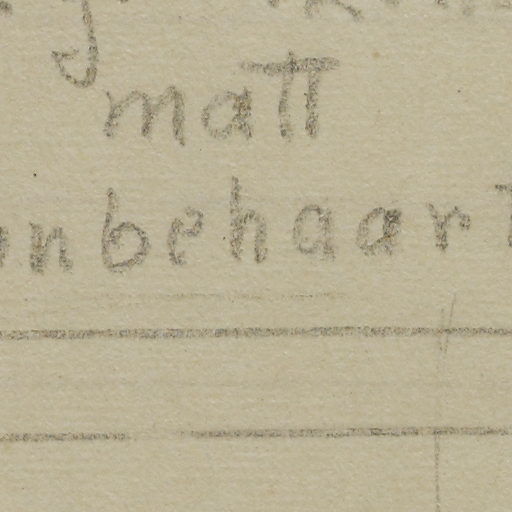 matt
unbehaart